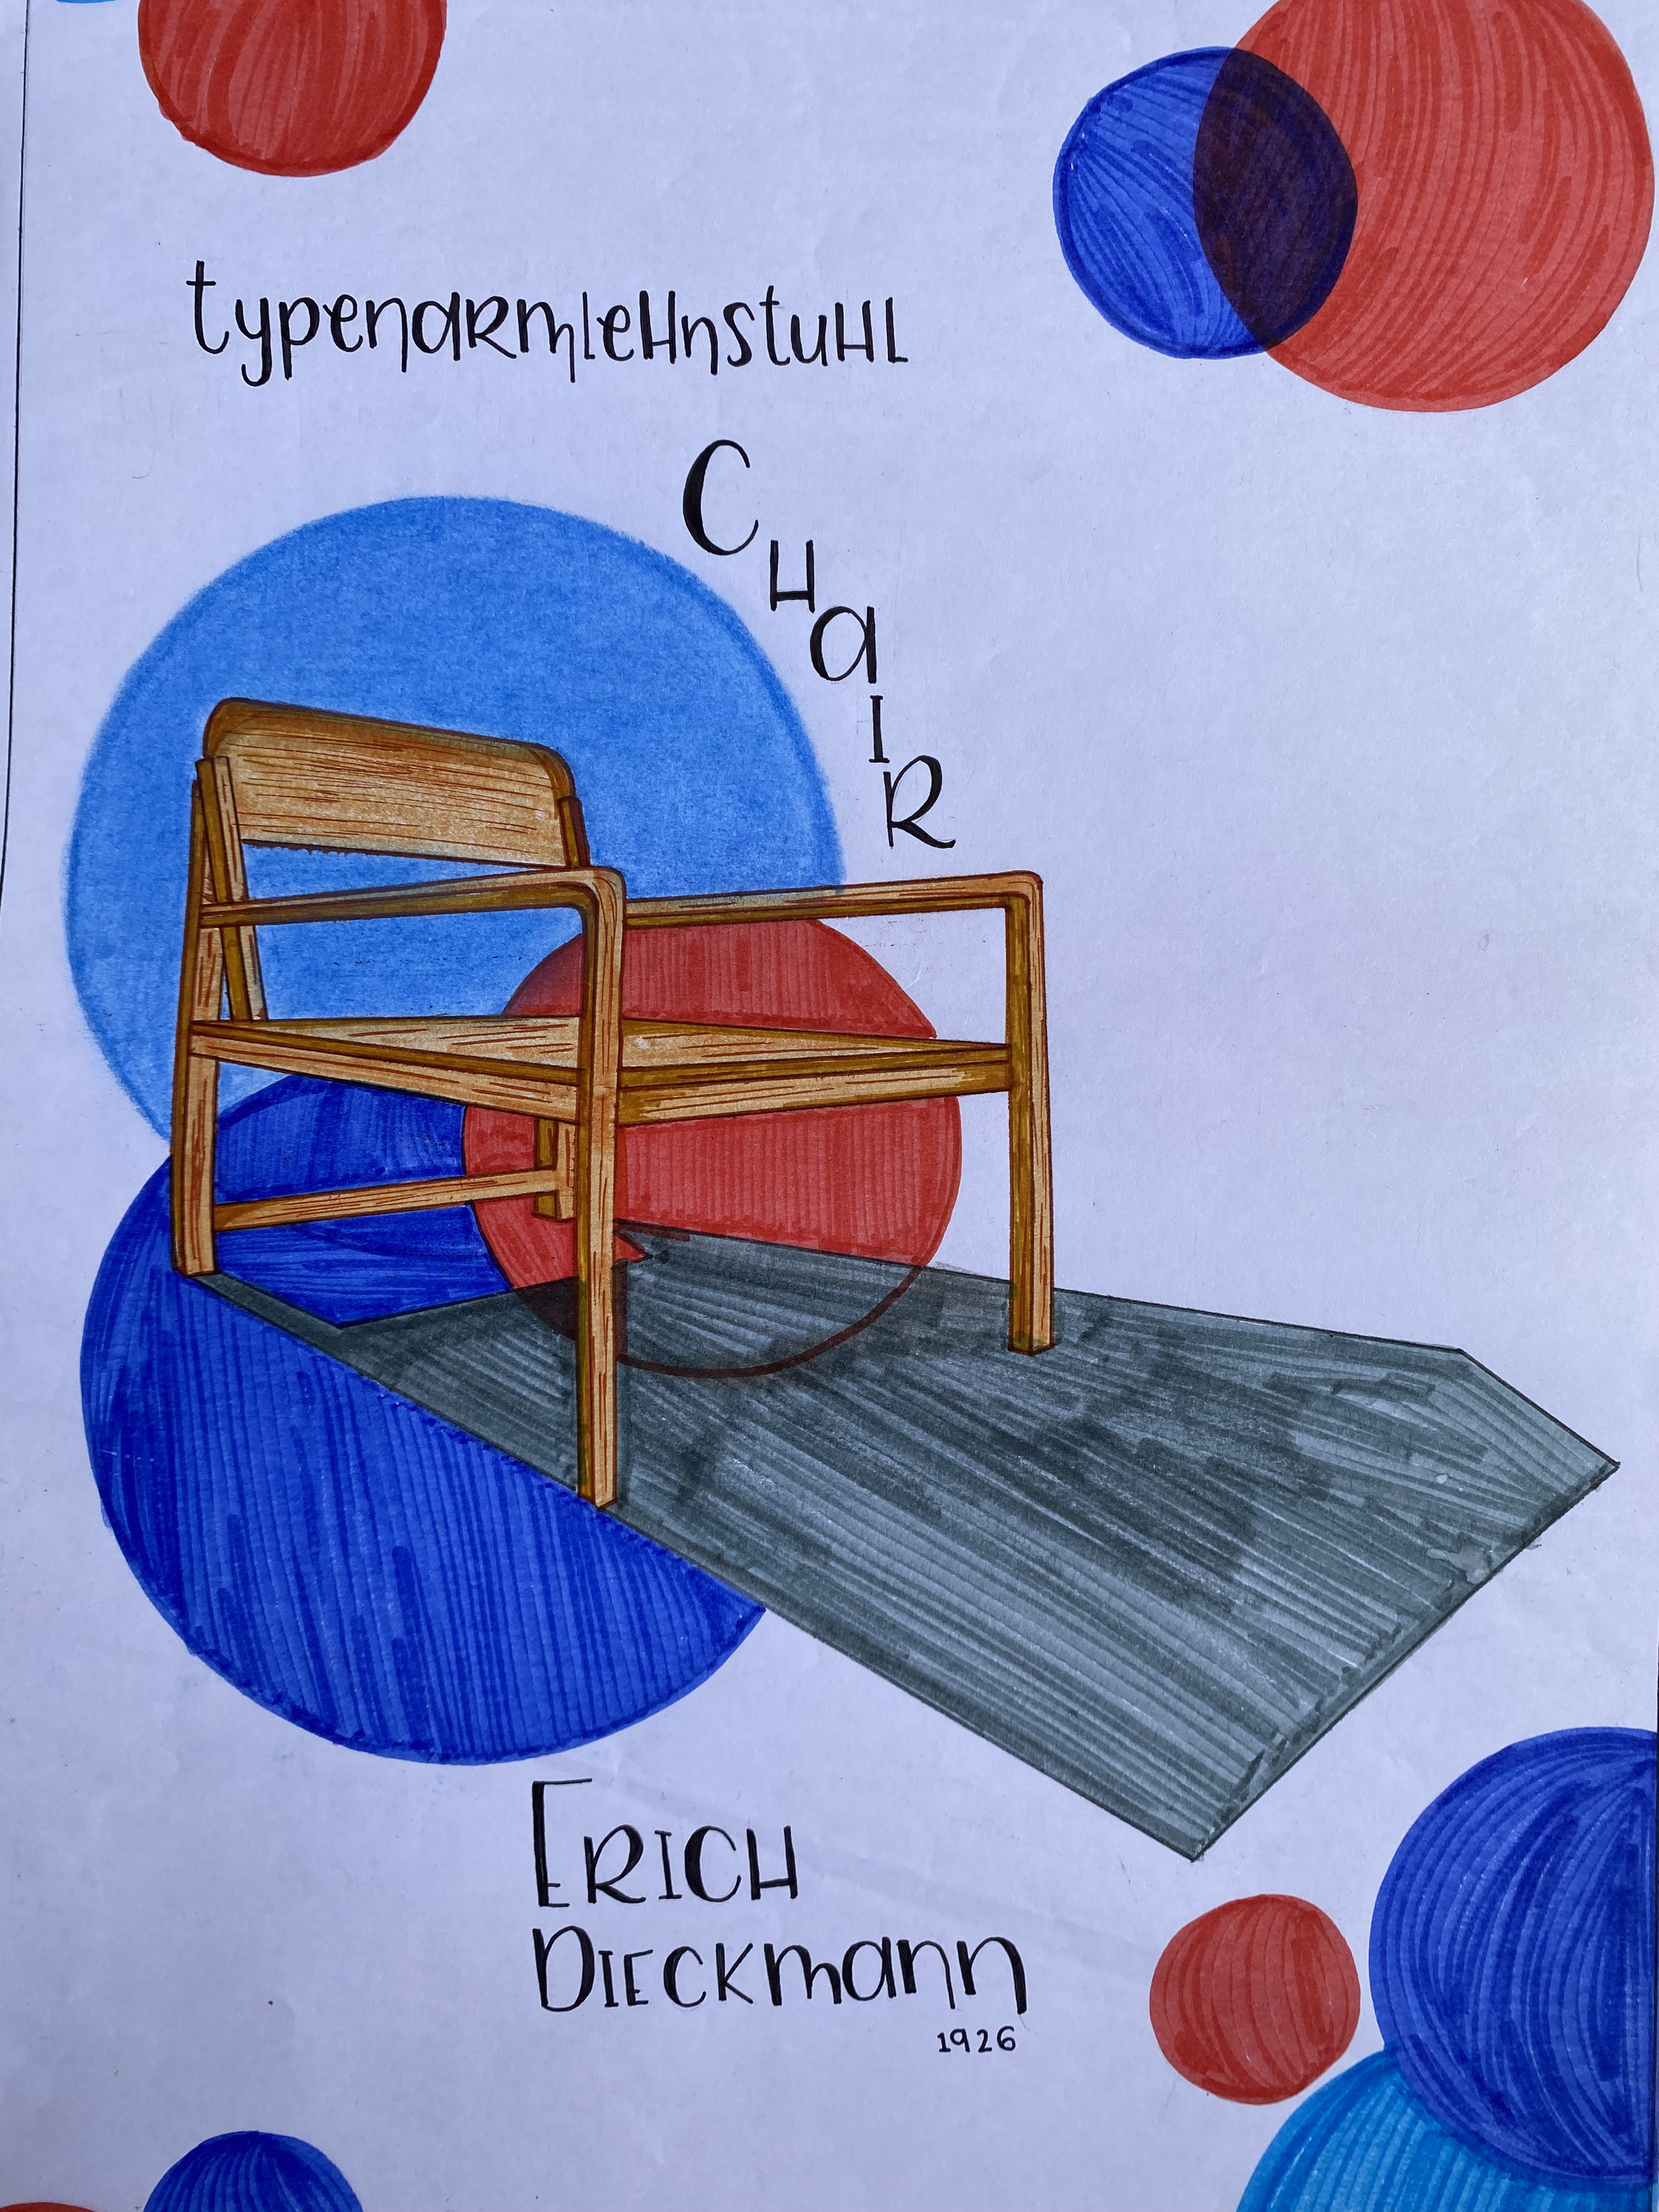 typenaRmleHnstuHL
CHaIR
ERICH
DIECKmann
1926